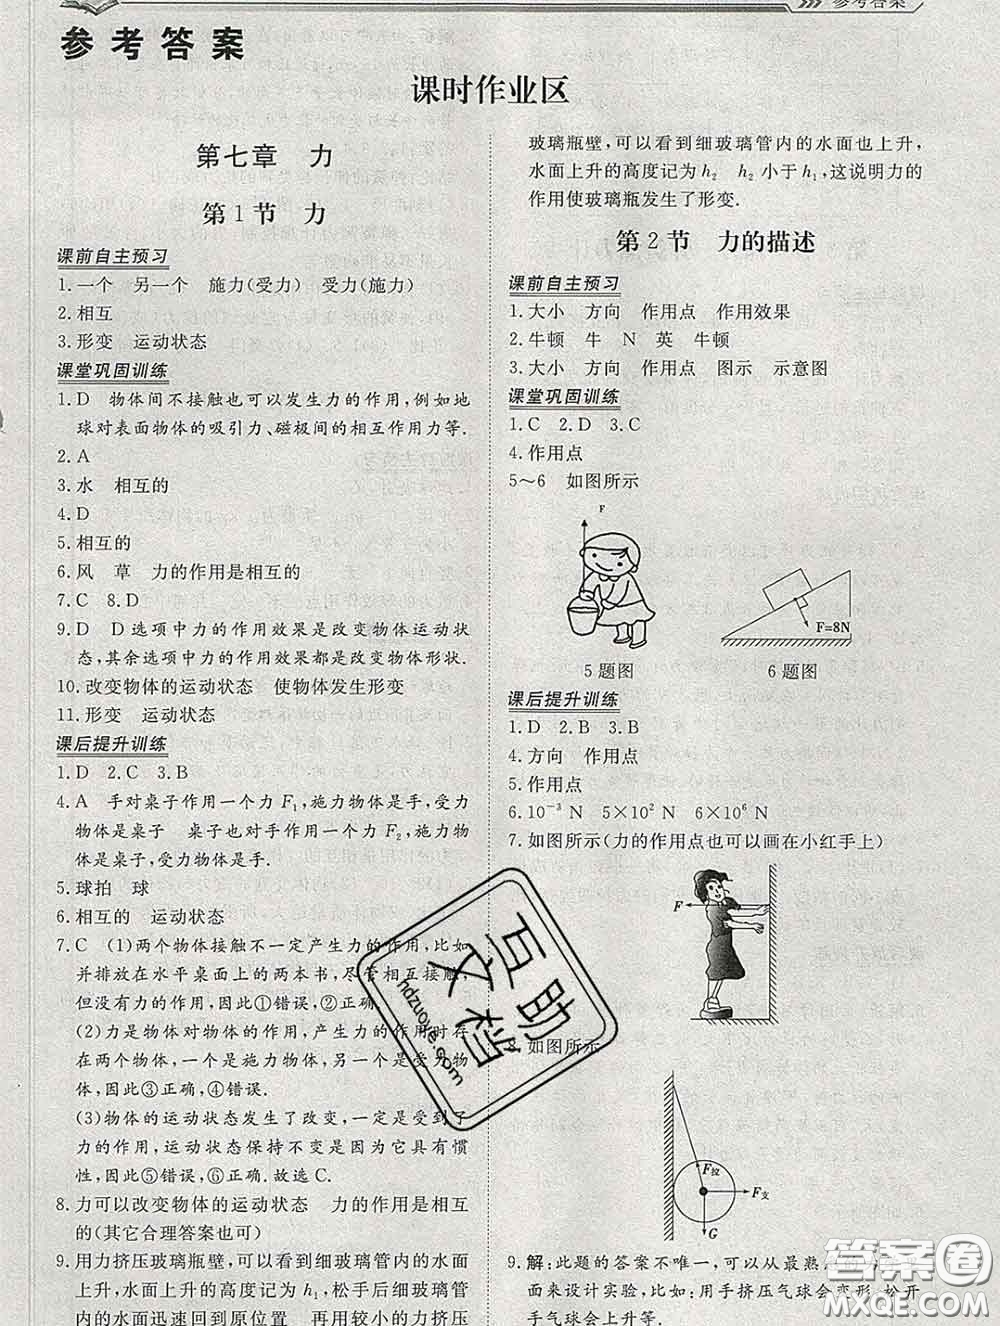 参考答案
参考答案
课时作业区
第七章 力
第1节 力
课前自主预习
1.一个 另一个 施力(受力) 受力(施力)
2.相互
3.形变 运动状态
课堂巩固训练
1.D 物体间不接触也可以发生力的作用,例如地
球对表面物体的吸引力、磁极间的相互作用力等.
2.A
3.水 相互的
4.D
5.相互的
6.风 草 力的作用是相互的
7.C 8.D
9.D D选项中力的作用效果是改变物体运动状
态,其余选项中力的作用效果都是改变物体形状.
10.改变物体的运动状态 使物体发生形变
11.形变 运动状态
课后提升训练
1.D 2.C 3.B
4.A 手对桌子作用一个力F₁,施力物体是手,受力
物体是桌子 桌子也对手作用一个力F₂,施力物
体是桌子,受力物体是手.
5.球拍 球
6.相互的 运动状态
7.C (1)两个物体接触不一定产生力的作用,比如
并排放在水平桌面上的两本书,尽管相互接触,
但没有力的作用,因此①错误,②正确.
(2)力是物体对物体的作用,产生力的作用时存
在两个物体,一个是施力物体,另一个是受力物
体,因此③正确,④错误.
(3)物体的运动状态发生了改变,一定是受到了
力的作用,运动状态保持不变是因为它具有惯
性,因此⑤错误,⑥正确.故选C.
8.力可以改变物体的运动状态 力的作用是相互
的(其它合理答案也可)
9.用力挤压玻璃瓶壁,可以看到细玻璃管内的水面
上升,水面上升的高度记为h₁,松手后细玻璃管
内的水面迅速回到原位置 再用力的方式挤压
玻璃瓶壁,可以看到细玻璃管内的水面也上升,
水面上升的高度记为h₂ h₂小于h₁,这说明力的
作用使玻璃瓶发生了形变.
第2节 力的描述
课前自主预习
1.大小 方向 作用点 作用效果
2.牛顿 牛 N 英 牛顿
3.大小 方向 作用点 图示 示意图
课堂巩固训练
1.C 2.D 3.C
4.作用点
5～6 如图所示
F
F=8N
5题图
6题图
课后提升训练
1.D 2.B 3.B
4.方向 作用点
5.作用点
6.10⁻³ N 5×10² N 6×10⁶ N
7.如图所示(力的作用点也可以画在小红手上)
F
如图所示
F拉
F支
G
9.解:此题的答案不唯一,可以从最熟
面来设计实验,比如:用手挤压气球会变形,松开
手气球会上升等.
互助文档
hdzuoye.com
答案圈
MXQE.COM